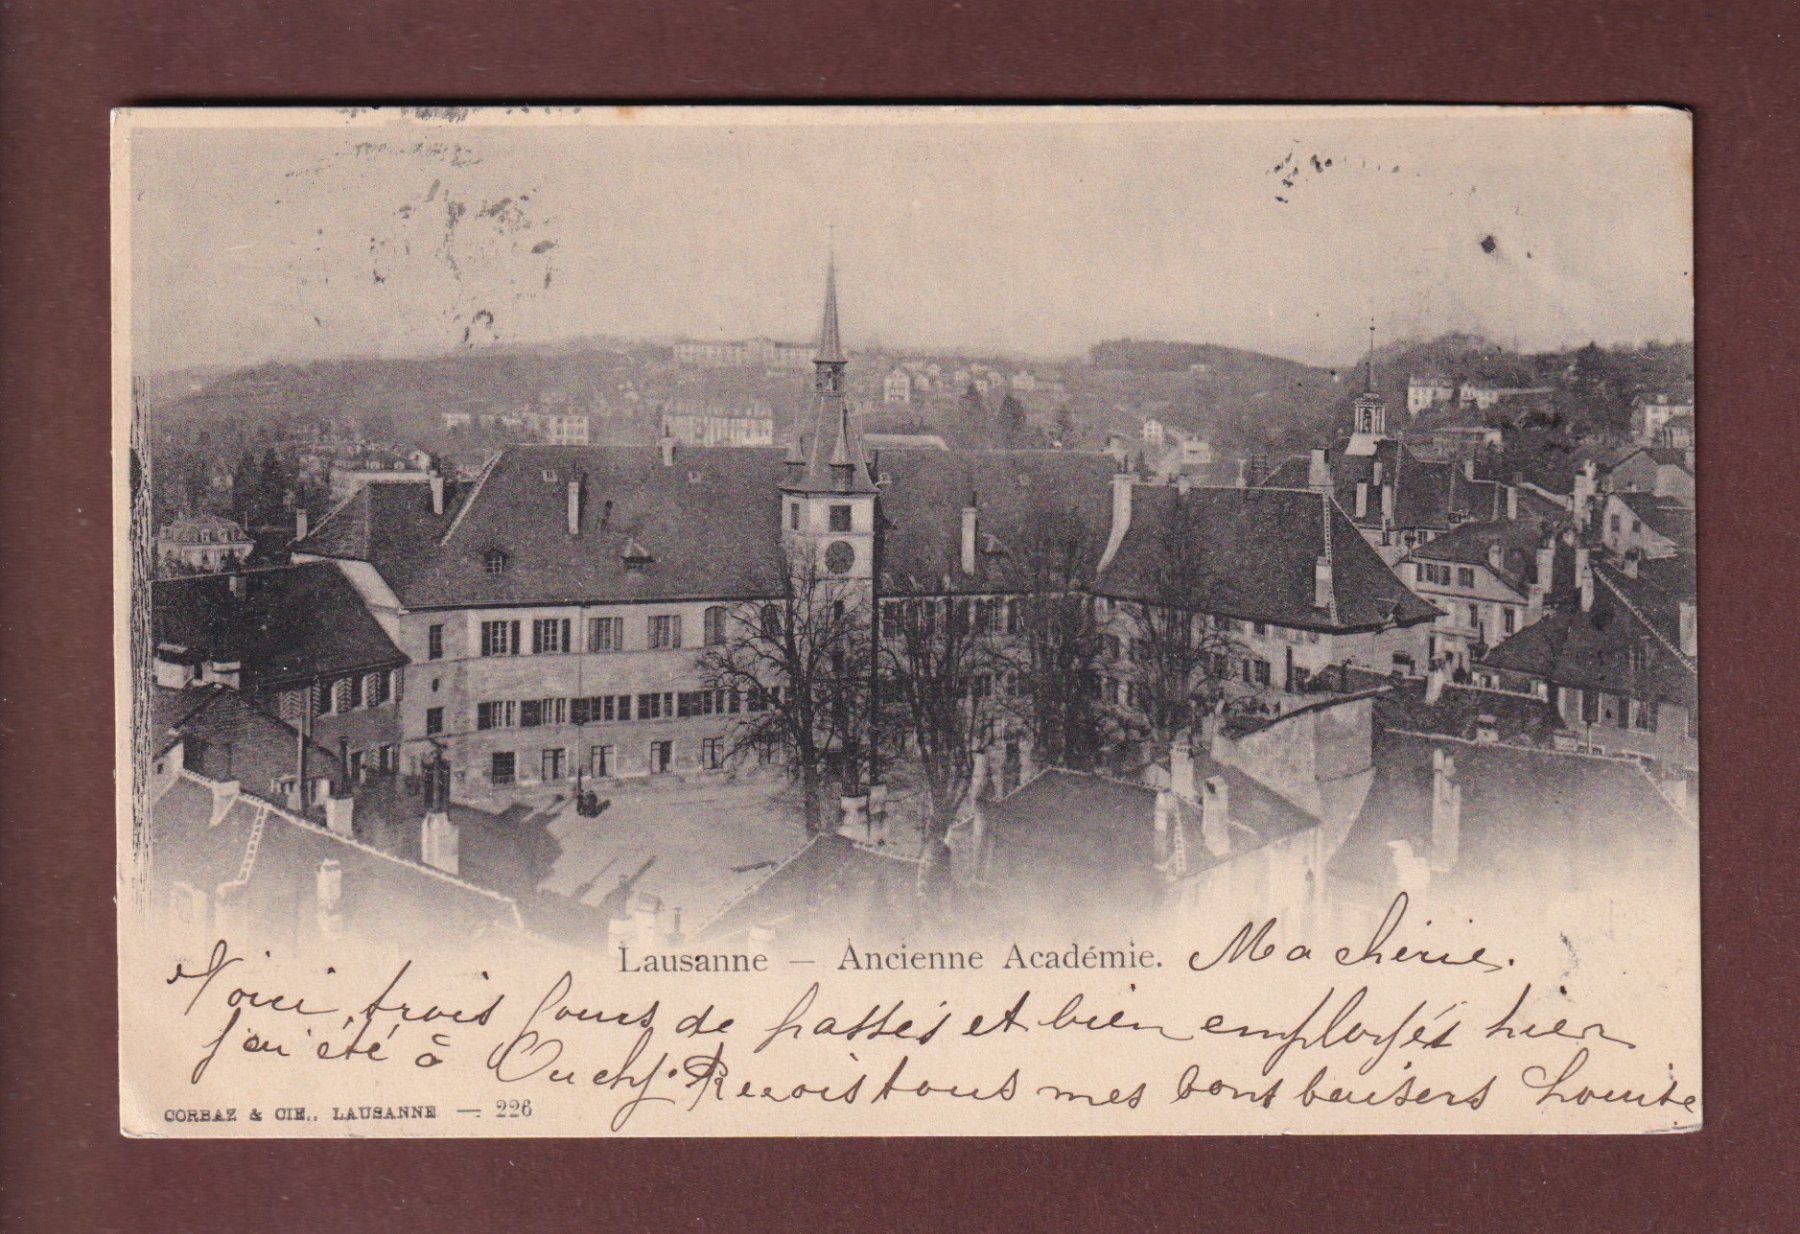 Lausanne — Ancienne Académie. Ma chérie.
Voici trois jours de passés et bien employés hier
j'ai été à Ouchy. Reçois tous mes bons baisers Louise
CORBAZ & CIE., LAUSANNE — 226